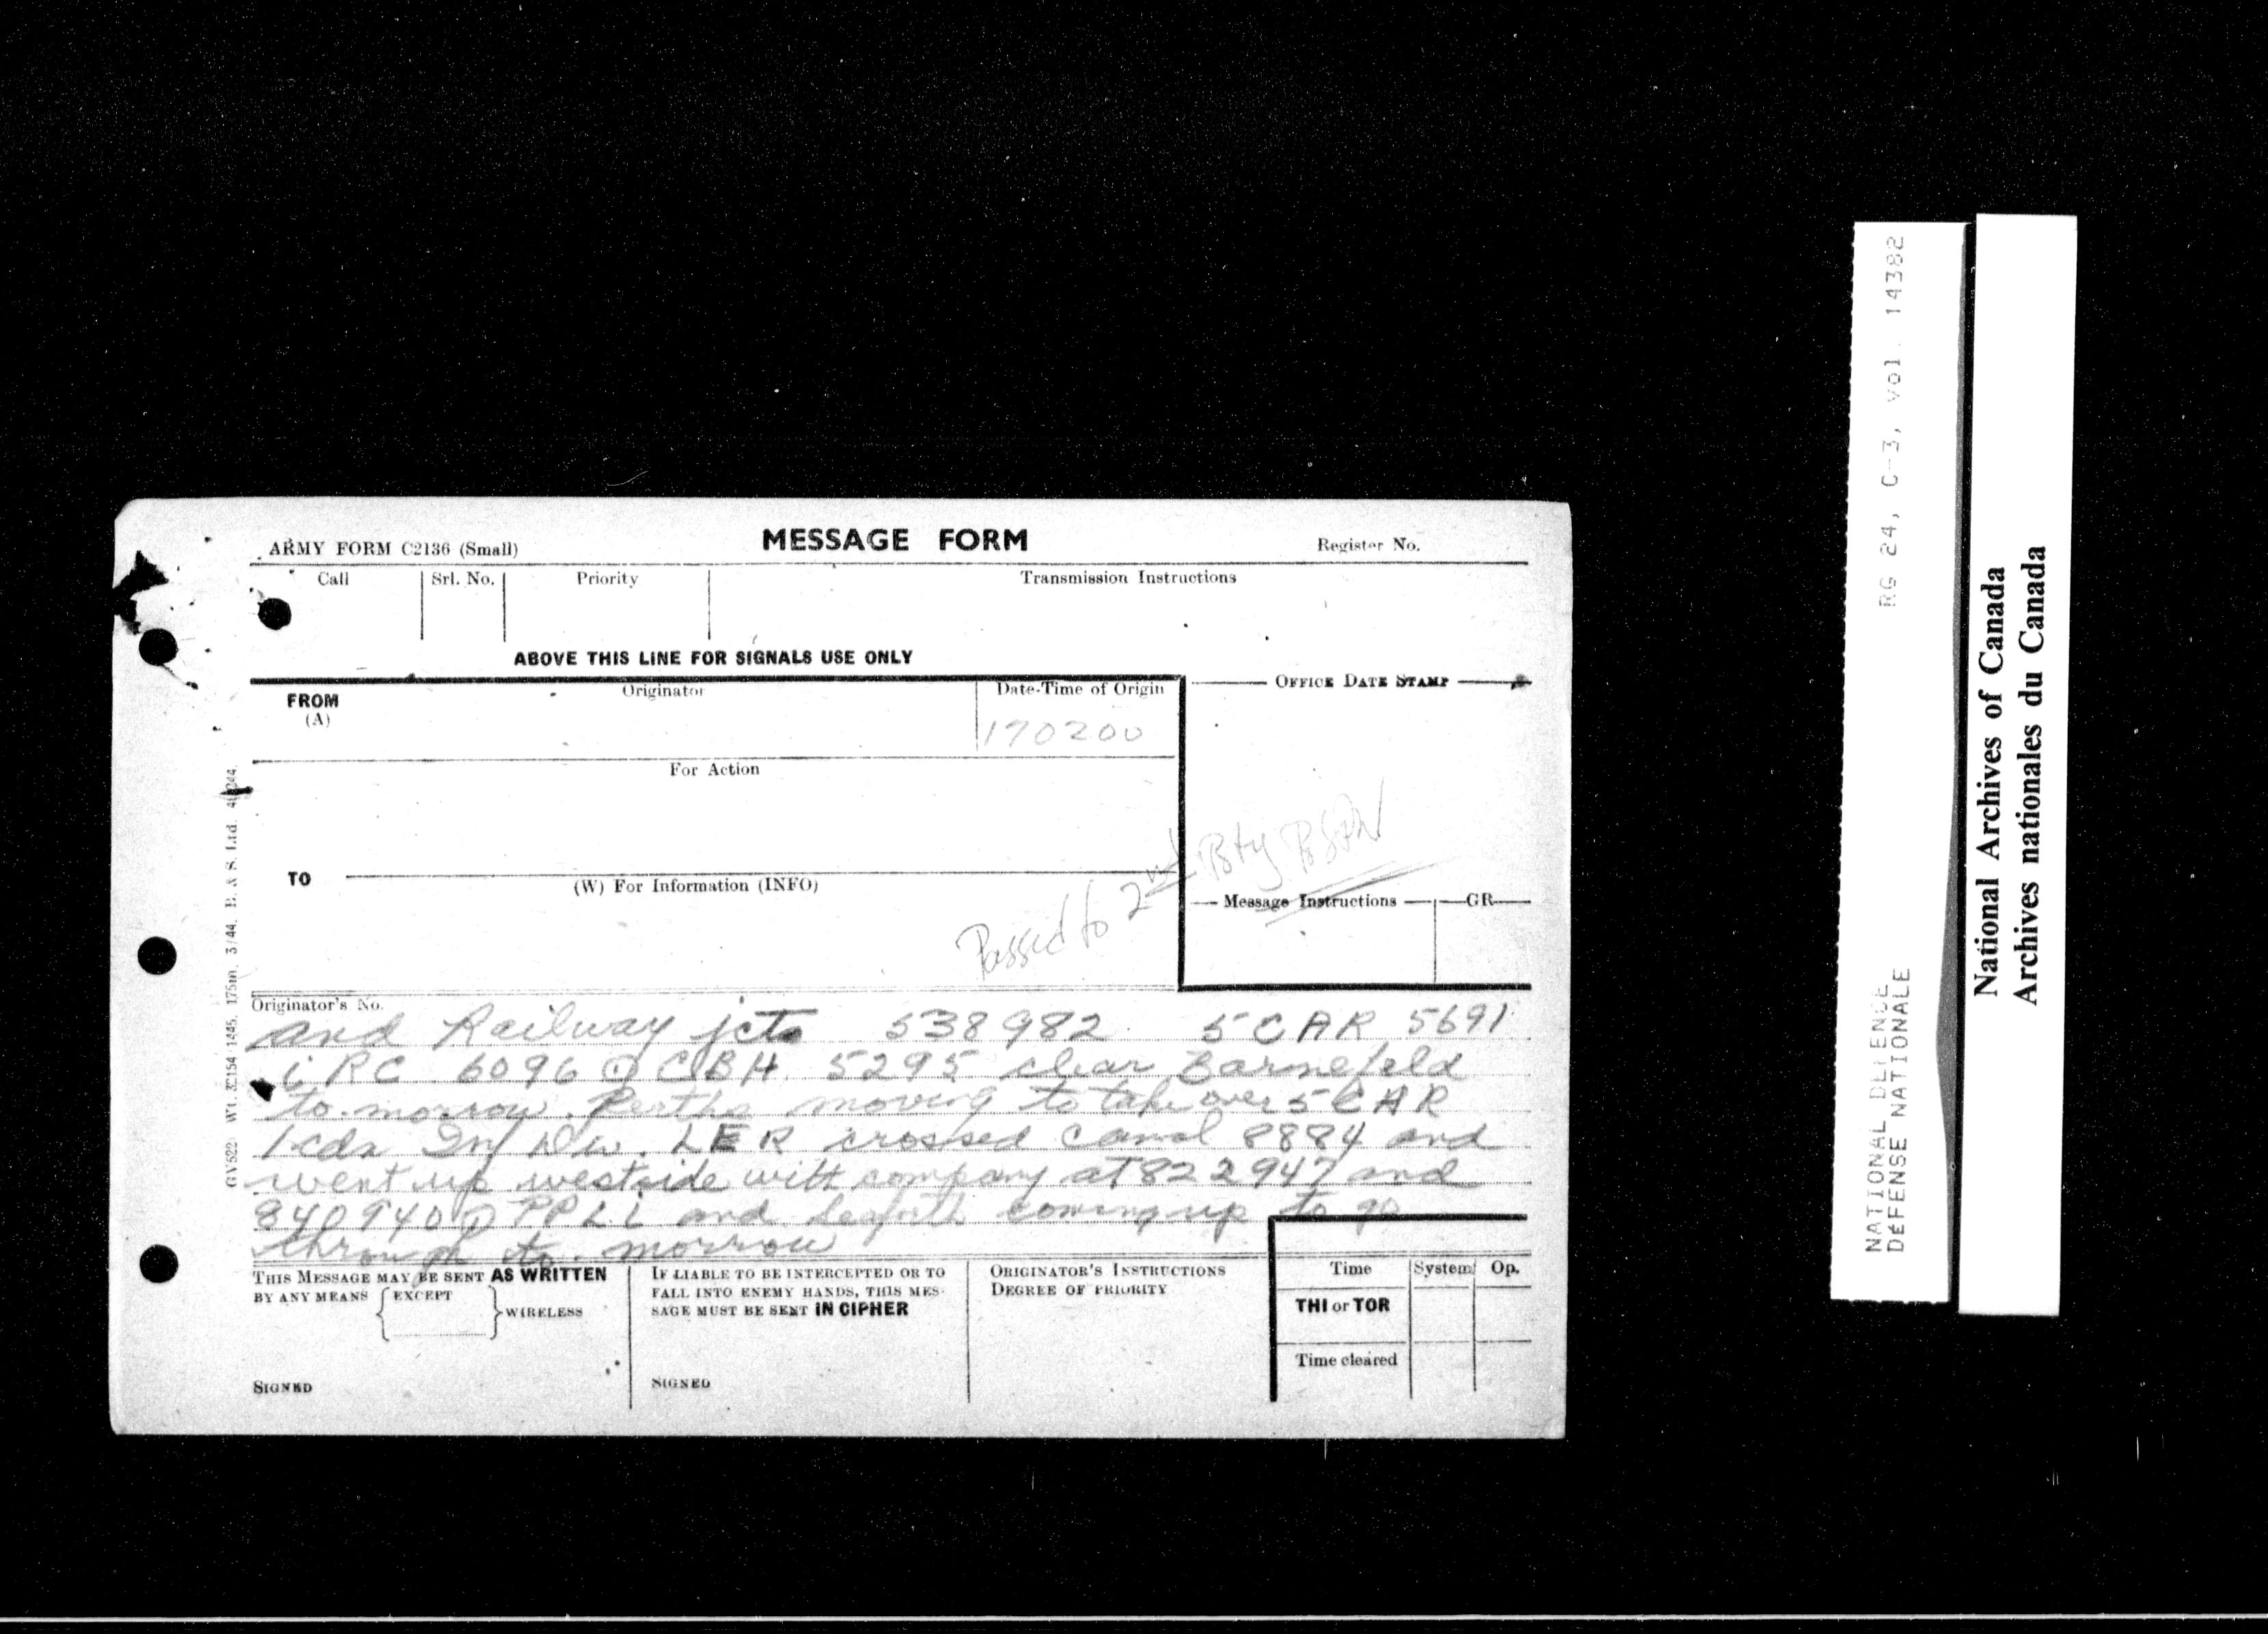 ARMY FORM C2136 (Small)
MESSAGE FORM
Register No.
Call
Srl. No.
Priority
Transmission Instructions
ABOVE THIS LINE FOR SIGNALS USE ONLY
FROM
(A)
Originator
Date-Time of Origin
170200
OFFICE DATE STAMP
For Action
TO
(W) For Information (INFO)
Passed to 2nd Bty
Message Instructions
GR
Originator's No.
and Railway jcts 538982 5 CAR 5691
RC 6096 CBH 5295 clear Barnefeld
to.morrow. Perths moving to take over 5 CAR
1 cdn Inf Div. LER crossed canal 8884 and
went up westside with company at 822947 and
840940 PPLI and Seaforth coming up to go
through to.morrow
THIS MESSAGE MAY BE SENT AS WRITTEN
BY ANY MEANS { EXCEPT } WIRELESS
SIGNED
IF LIABLE TO BE INTERCEPTED OR TO
FALL INTO ENEMY HANDS, THIS MES-
SAGE MUST BE SENT IN CIPHER
SIGNED
ORIGINATOR'S INSTRUCTIONS
DEGREE OF PRIORITY
Time
System
Op.
THI or TOR
Time cleared
GV522 Wt. 32154 1445. 175m. 3/44. B. & S. Ltd.
RG 24, C-3, vol. 14382
NATIONAL DEFENCE
DEFENSE NATIONALE
National Archives of Canada
Archives nationales du Canada